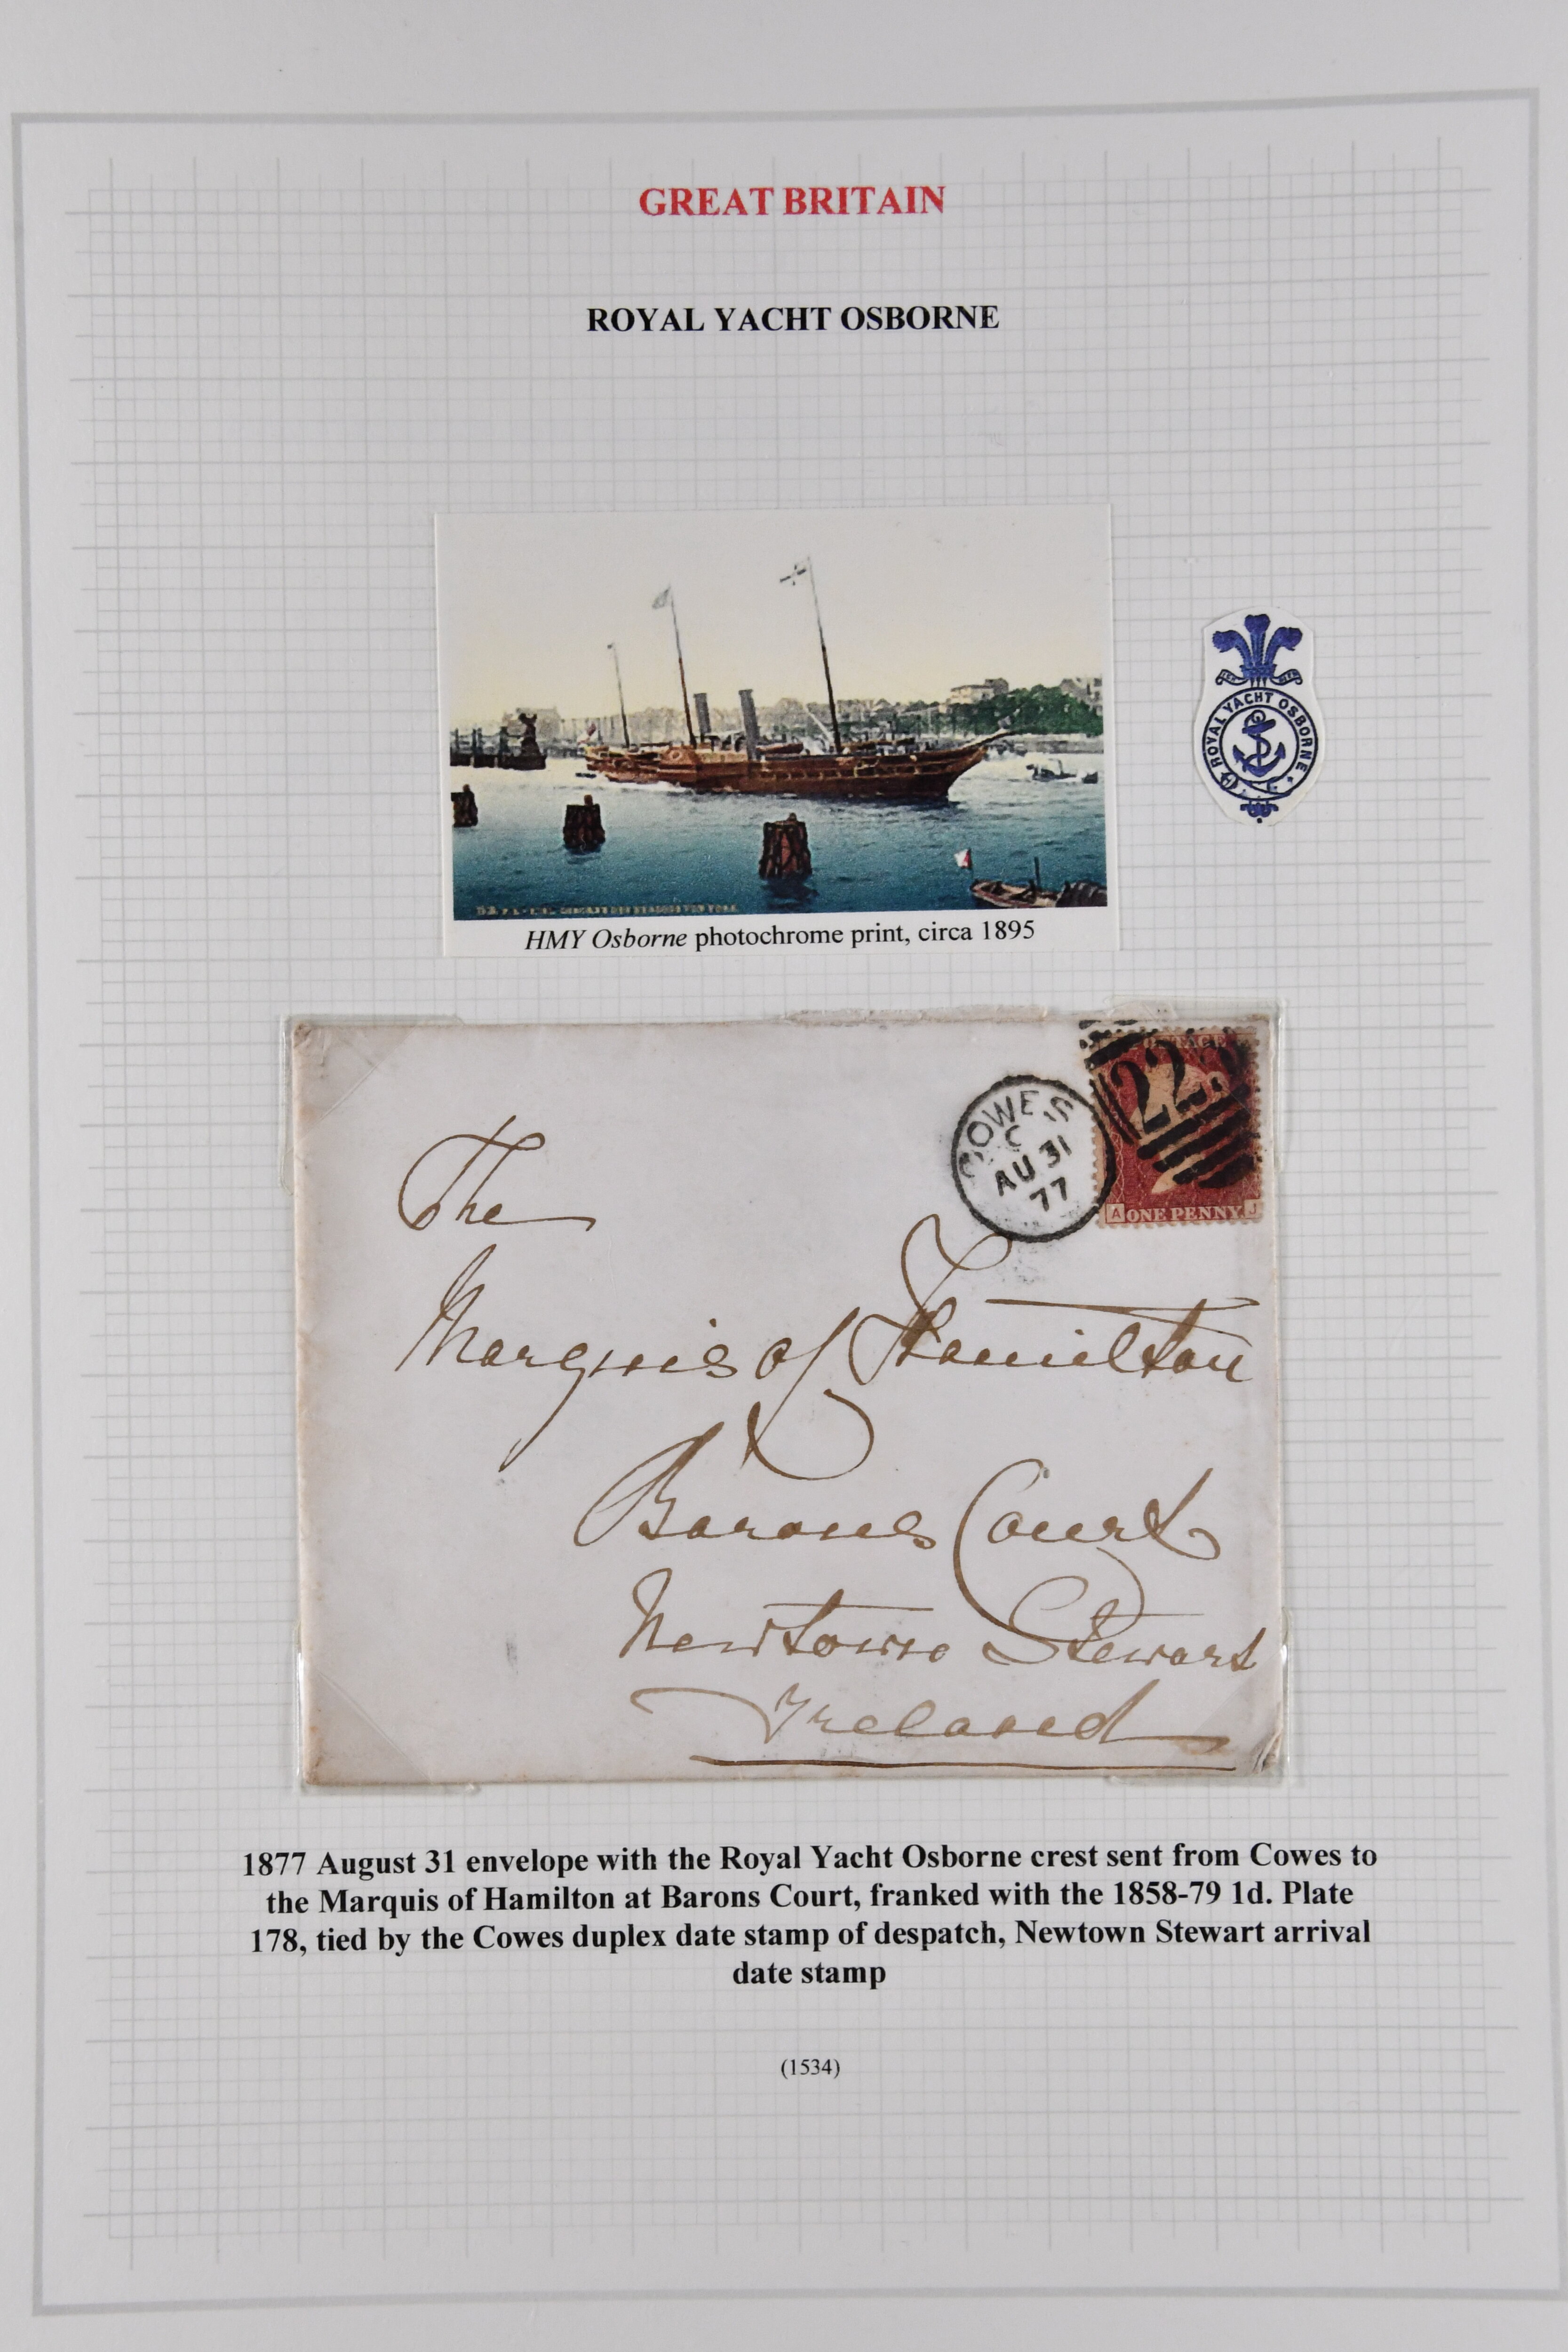 GREAT BRITAIN
ROYAL YACHT OSBORNE
ROYAL YACHT OSBORNE
HMY Osborne photochrome print, circa 1895
COWES
C
AU 31
77
22
POSTAGE
A ONE PENNY J
The
Marquis of Hamilton
Barons Court
Newtown Stewart
Ireland
1877 August 31 envelope with the Royal Yacht Osborne crest sent from Cowes to
the Marquis of Hamilton at Barons Court, franked with the 1858-79 1d. Plate
178, tied by the Cowes duplex date stamp of despatch, Newtown Stewart arrival
date stamp
(1534)